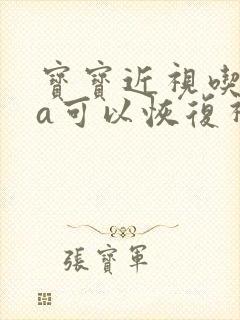 寶寶近視喫
a可以恢復
張寶軍